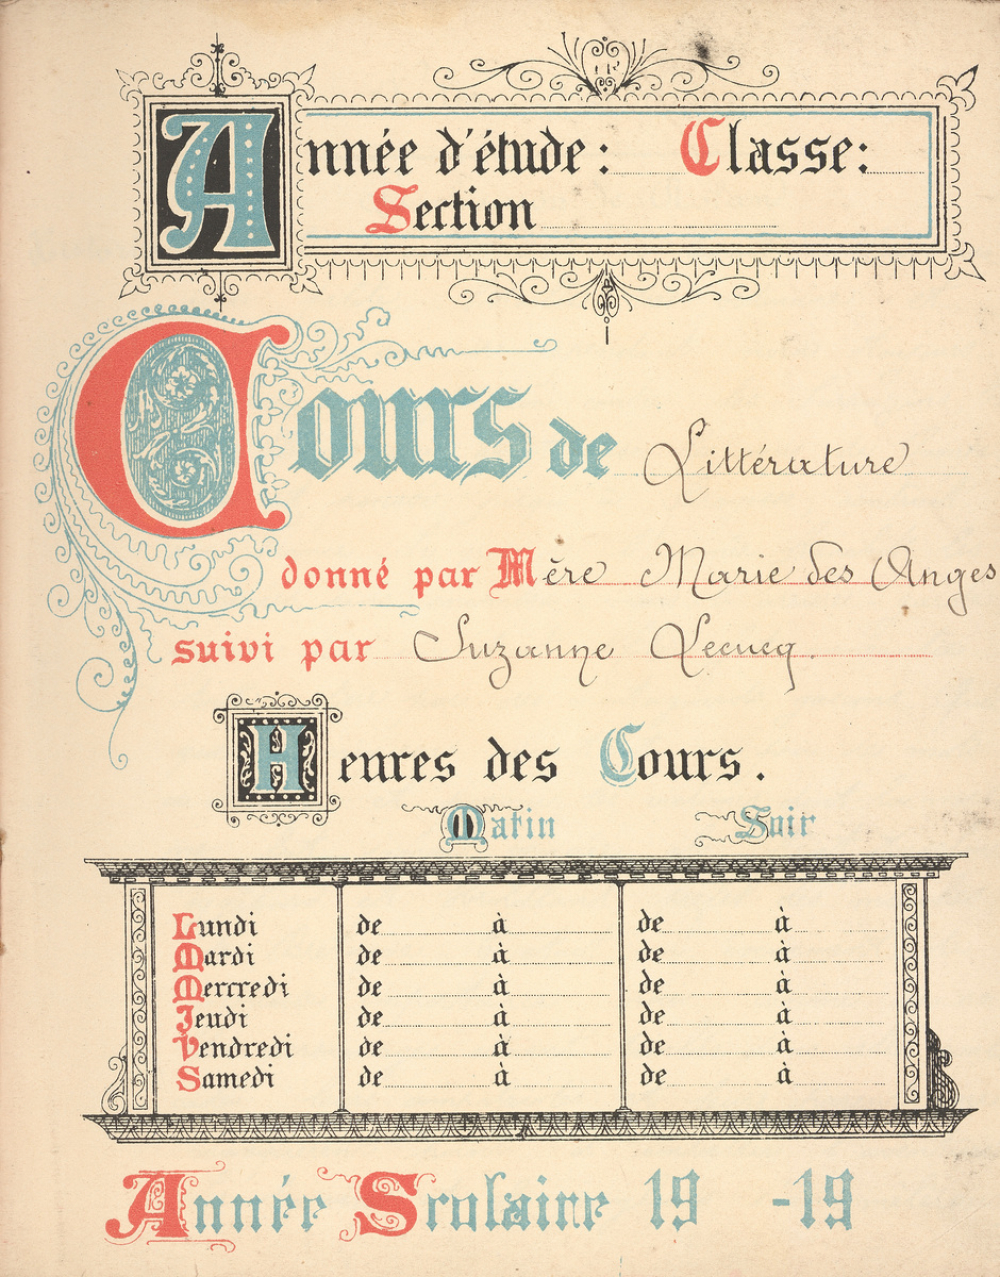 Année d'étude: Classe:
Section
Cours de Littérature
donné par Mère Marie des Anges
suivi par Suzanne Lecucq.
Heures des Cours.
Matin Soir
Lundi de à de à
Mardi de à de à
Mercredi de à de à
Jeudi de à de à
Vendredi de à de à
Samedi de à de à
Année Scolaire 19 -19